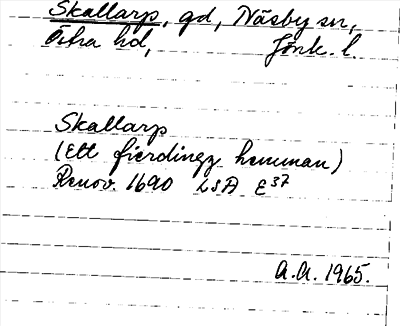 Skallarp, gd, Näsby sn,
Östra hd, Jönk. l.
Skallarp
(Ett fierdingz hemman)
Renov. 1690 LSA E37
A.A. 1965.